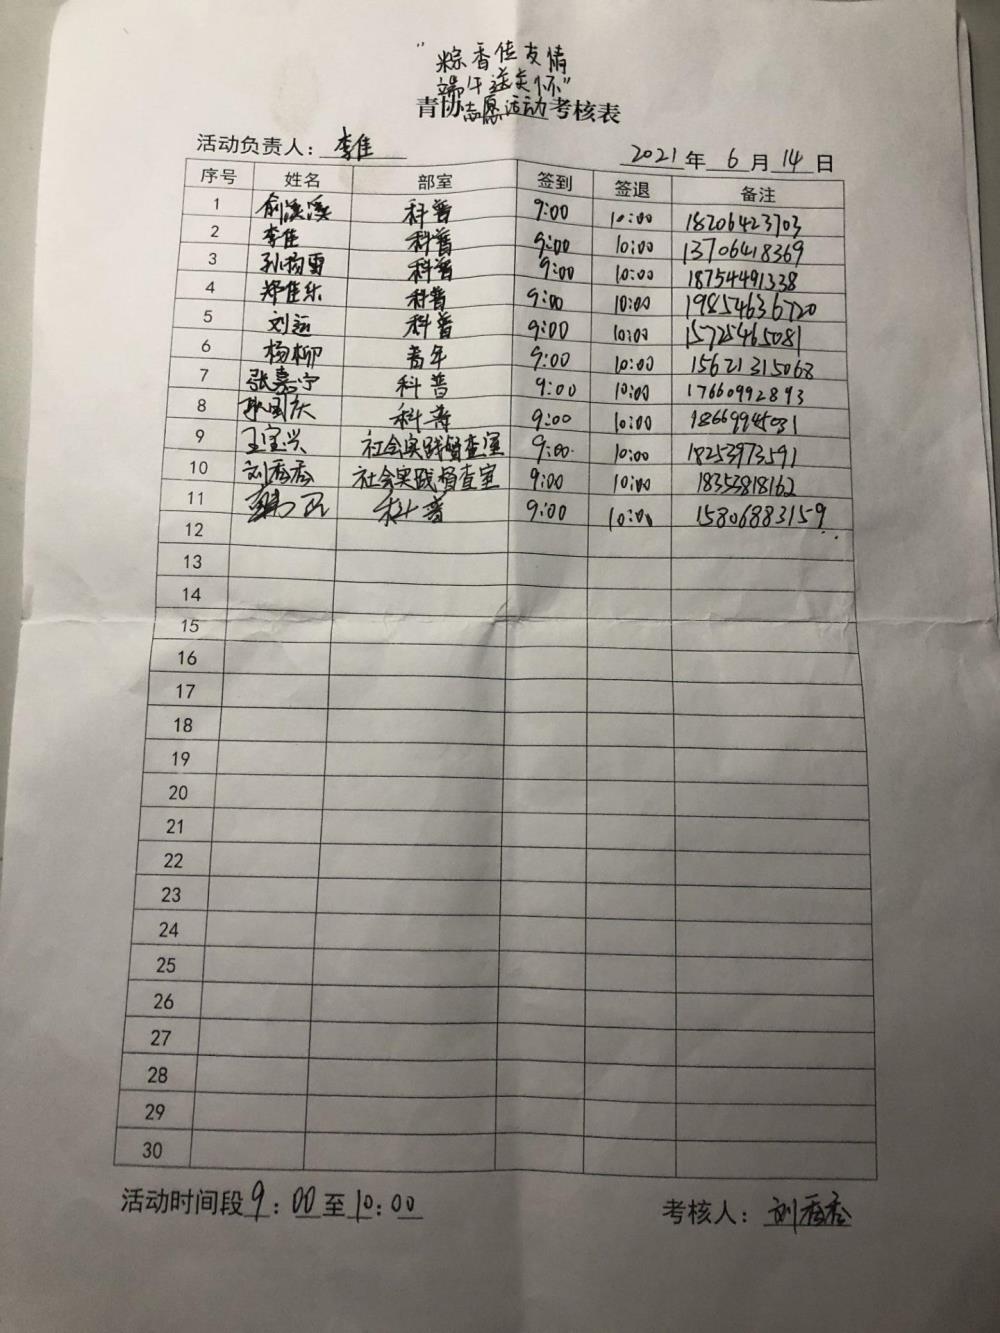 "粽香传友情
端午送关怀"
青协志愿活动考核表
活动负责人：李佳 2021年6月14日
序号 姓名 部室 签到 签退 备注
1 俞溪溪 科普 9:00 10:00 18206423703
2 李佳 科普 9:00 10:00 13706418369
3 科普 9:00 10:00 18754491338
4 郑佳乐 科普 9:00 10:00 19854636720
5 刘运 科普 9:00 10:00 15725465081
6 杨柳 青年 9:00 10:00 15621315068
7 张嘉宁 科普 9:00 10:00 17660992893
8 耿国庆 科普 9:00 10:00 18669945031
9 王宝兴 社会实践督查室 9:00 10:00 18253973591
10 刘香香 社会实践督查室 9:00 10:00 18353818162
11 科普 9:00 10:00 15806883159
12
13
14
15
16
17
18
19
20
21
22
23
24
25
26
27
28
29
30
活动时间段9:00至10:00 考核人：刘香香